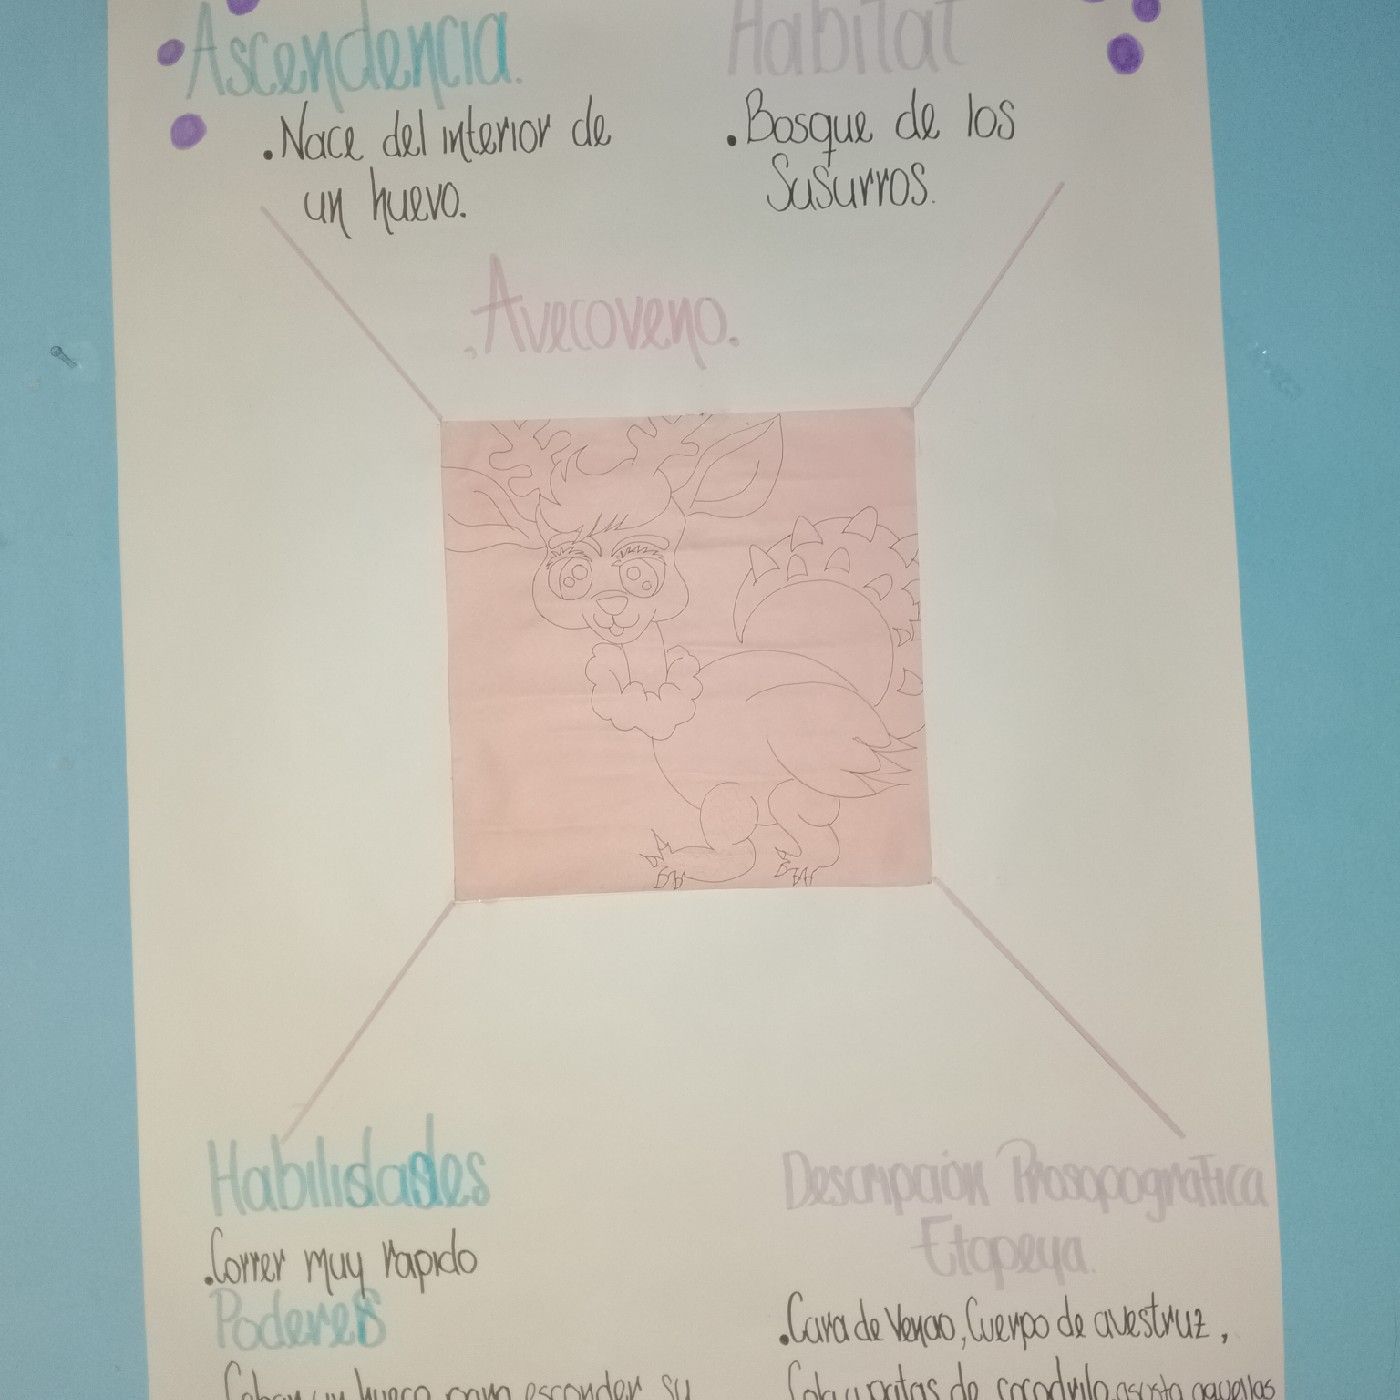 Ascendencia.
. Nace del interior de
un huevo.
Habitat
. Bosque de los
Susurros.
. Avecoveno.
Habilidades
. Correr muy rapido
Poderes
un hueco para esconder su
Descripción Prosopografica
Etopeya.
. Cara de Venao, Cuerpo de avestruz,
Cola y patas de cocodrilo,